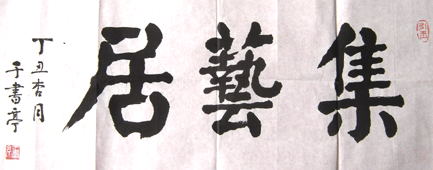 集藝居
丁丑杏月
于書亭